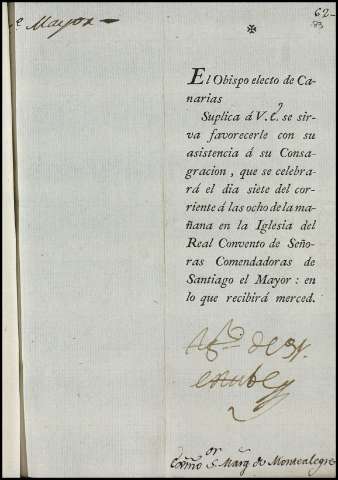 e Mayor
62
83
✠
El Obispo electo de Ca-
narias
Suplica á V. E. se sir-
va favorecerle con su
asistencia á su Consa-
gracion, que se celebra-
rá el dia siete del cor-
riente á las ocho de la ma-
ñana en la Iglesia del
Real Convento de Seño-
ras Comendadoras de
Santiago el Mayor: en
lo que recibirá merced.
de
or
Exmo S. Marq de Montealegre